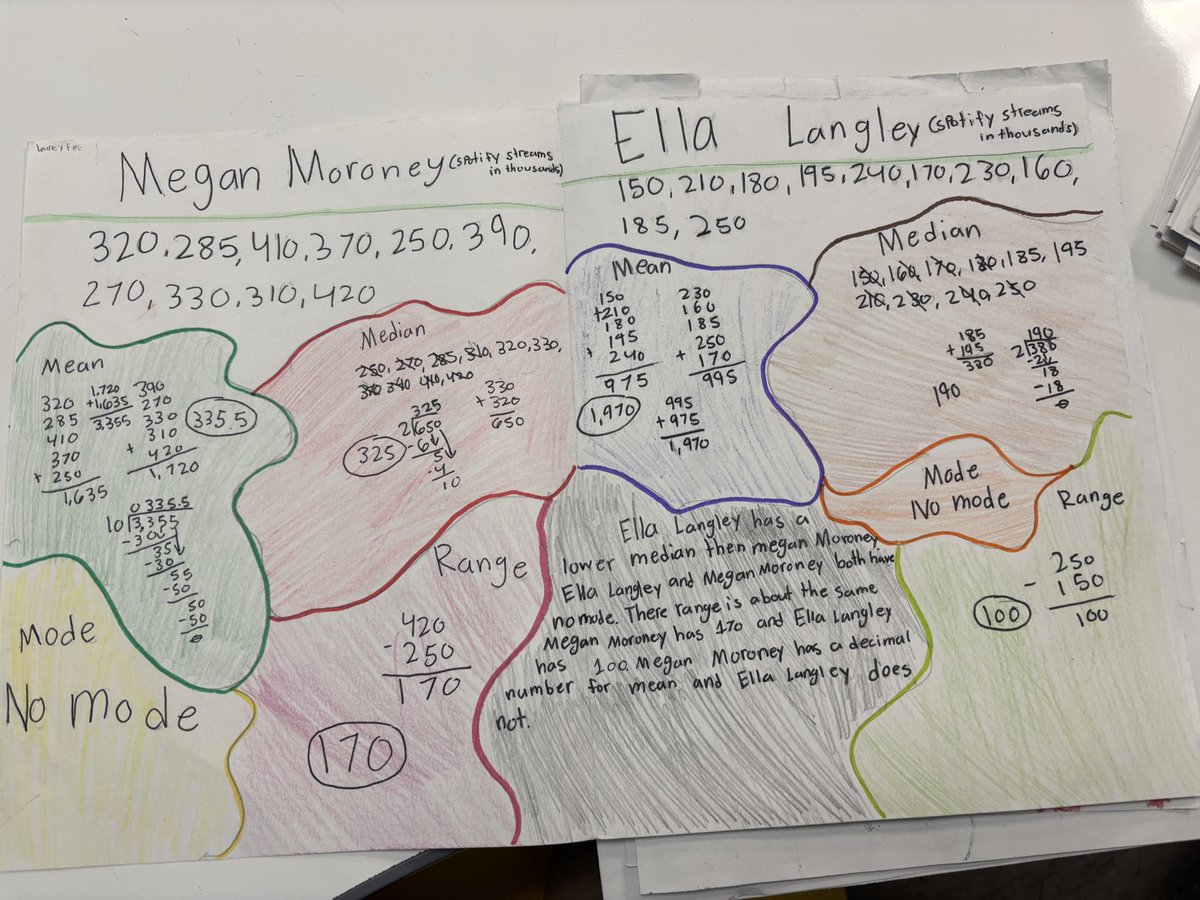 Megan Moroney (spotify streams
in thousands)
320, 285, 410, 370, 250, 390,
270, 330, 310, 420
Mean
320
285
410
370
+ 250
1,635
1,720
+1,635
3,355
390
270
330
310
+ 420
1,720
335.5
0335.5
10 3,355
-30
35
-30
55
-50
50
-50
0
Median
250, 270, 285, 310, 320, 330,
370 390 410, 420
330
+ 320
650
325
2 650
-6
5
-4
10
325
Mode
No mode
Range
420
- 250
170
170
Ella Langley (spotify streams
in thousands)
150, 210, 180, 195, 240, 170, 230, 160,
185, 250
Mean
150
+210
180
195
+ 240
975
230
160
185
250
+ 170
995
1,970
995
+ 975
1,970
Median
150, 160, 170, 180, 185, 195
210, 230, 240, 250
185
+ 195
380
190
2 380
18
-18
0
190
Mode
No mode
Range
250
- 150
100
100
Ella Langley has a
lower median then megan Moroney
Ella Langley and Megan Moroney both have
no mode. There range is about the same
Megan Moroney has 170 and Ella Langley
has 100 Megan Moroney has a decimal
number for mean and Ella Langley does
not.